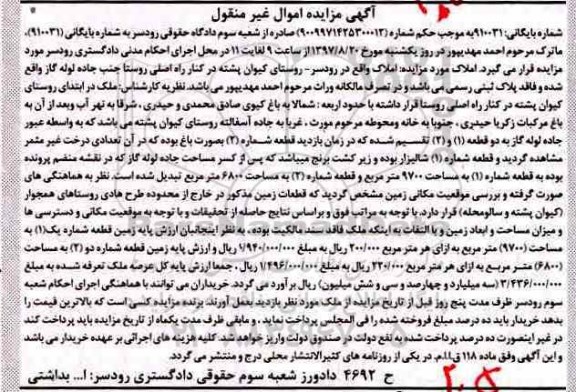 آگهی مزایده اموال غیر منقول
شماره بایگانی: ۹۱۰۰۳۱ به موجب حکم شماره (۹۰۰۹۹۷۱۴۲۵۳۰۰۰۱۲) صادره از شعبه سوم دادگاه حقوقی رودسر به شماره بایگانی (۹۱۰۰۳۱)،
ماترک مرحوم احمد مهدیپور در روز یکشنبه مورخ ۱۳۹۷/۸/۲۰ از ساعت ۹ لغایت ۱۱ در محل اجرای احکام مدنی دادگستری رودسر مورد
مزایده قرار می گیرد. املاک مورد مزایده: املاک واقع در رودسر- روستای کیوان پشته در کنار راه اصلی روستا جنب جاده لوله گاز واقع
شده و فاقد پلاک ثبتی رسمی می باشد و در تصرف مالکانه وراث مرحوم احمد مهدیپور می باشد. نظریه کارشناس: ملک در ابتدای روستای
کیوان پشته در کنار راه اصلی روستا قرار داشته با حدود اربعه : شمالا به باغ کیوی صادق محمدی و حیدری ، شرقا به نهر آب وبعد از آن به
باغ مرکبات زکریا حیدری ، جنوبا به خانه ومحوطه مرحوم مورث ، غربا به جاده آسفالته روستای کیوان پشته می باشد که به واسطه عبور
جاده لوله گاز به دو قطعه (۱) و (۲) تقسیم شده که در زمان بازدید قطعه شماره (۲) بصورت باغ بوده که در آن تعدادی درخت غیر مثمر
مشاهده گردید و قطعه شماره (۱) شالیزار بوده و زیر کشت برنج میباشد که پس از کسر مساحت جاده لوله گاز که در نقشه منضم پرونده
بوده به قطعه شماره (۱) به مساحت ۹۷۰۰ متر مربع و قطعه شماره (۲) به مساحت ۶۸۰۰ متر مربع تبدیل شده است. نظر به هماهنگی های
صورت گرفته و بررسی موقعیت مکانی زمین مشخص گردید که قطعات زمین مذکور در خارج از محدوده طرح هادی روستاهای همجوار
(کیوان پشته و سالومحله) قرار دارد. با توجه به مراتب فوق و براساس نتایج حاصله از تحقیقات و با توجه به موقعیت مکانی و دسترسی ها
و میزان مساحت و ابعاد زمین و با التفات به اینکه ملک فاقد سند مالکیت بوده ، به نظر اینجانبان ارزش پایه زمین قطعه شماره یک(۱) به
مساحت (۹۷۰۰) متر مربع به ازای هر متر مربع ۲۰۰/۰۰۰ ریال به مبلغ ۱/۹۴۰/۰۰۰/۰۰۰ ریال و ارزش پایه زمین قطعه شماره دو (۲) به مساحت
(۶۸۰۰) متر مربع به ازای هر متر مربع ۲۲۰/۰۰۰ ریال به مبلغ ۱/۴۹۶/۰۰۰/۰۰۰ ریال ، جمعا ارزش پایه کل عرصه ملک تعرفه شده به مبلغ
۳/۴۳۶/۰۰۰/۰۰۰ (سه میلیارد و چهارصد و سی و شش میلیون) ریال بر آورد می گردد. خریداران می توانند با هماهنگی اجرای احکام شعبه
سوم رودسر ظرف مدت پنج روز قبل از تاریخ مزایده از ملک مورد نظر بازدید بعمل آورند. برنده مزایده کسی است که بالاترین قیمت را
بدهد خریدار باید ده درصد مبلغ فروخته شده را فی المجلس پرداخت نماید . و مابقی ظرف مدت یکماه از تاریخ مزایده باید پرداخت کند
در غیر اینصورت ده درصد پرداخت شده به نفع دولت در صندوق دولت واریز خواهد شد. کلیه هزینه های اجرائی بر عهده خریدار می باشد
و این آگهی وفق ماده ۱۱۸ ق.ا.م. در یکی از روزنامه های کثیرالانتشار محلی درج و منتشر می گردد.
ح ۴۶۹۲ دادورز شعبه سوم حقوقی دادگستری رودسر: ا... بداشتی